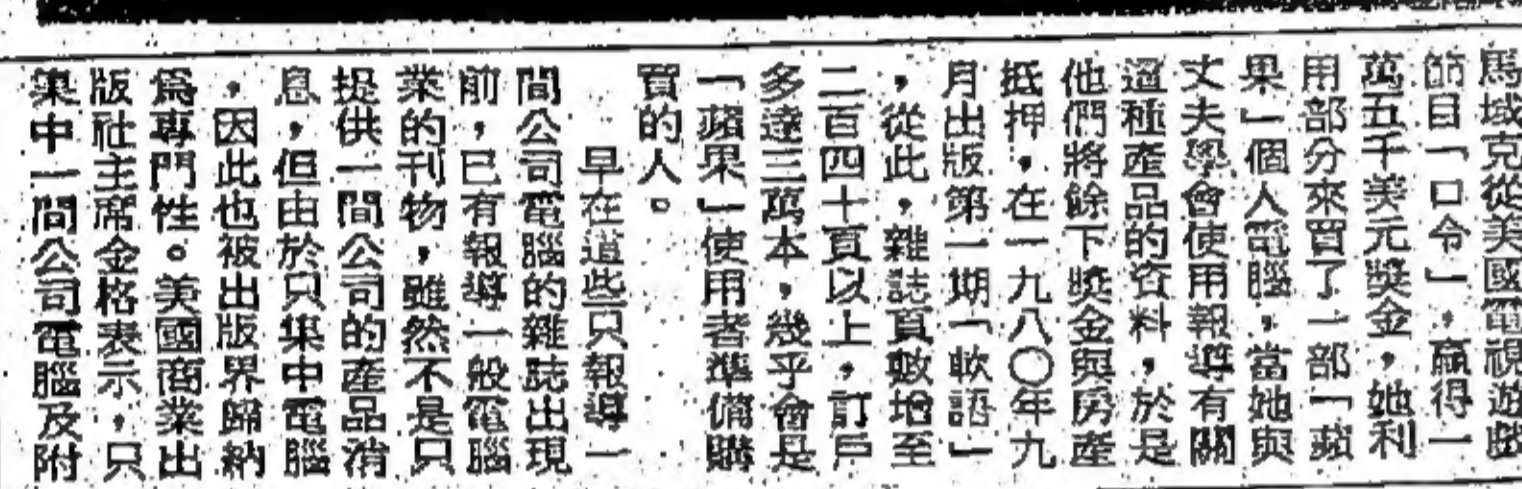 馬域克從美國電視遊戲
節目「口令」,贏得一
萬五千美元獎金,她利
用部分來買了一部「蘋
果」個人電腦,當她與
丈夫學會使用報導有關
這種產品的資料,於是
他們將餘下獎金與房產
抵押,在一九八〇年九
月出版第一期「軟語」
,從此,雜誌頁數增至
二百四十頁以上,訂戶
多達三萬本,幾乎會是
「蘋果」使用者準備購
買的人。
早在這些只報導一
間公司電腦的雜誌出現
前,已有報導一般電腦
業的刊物,雖然不是只
提供一間公司的產品消
息,但由於只集中電腦
,因此也被出版界歸納
爲專門性。美國商業出
版社主席金格表示,只
集中一間公司電腦及附